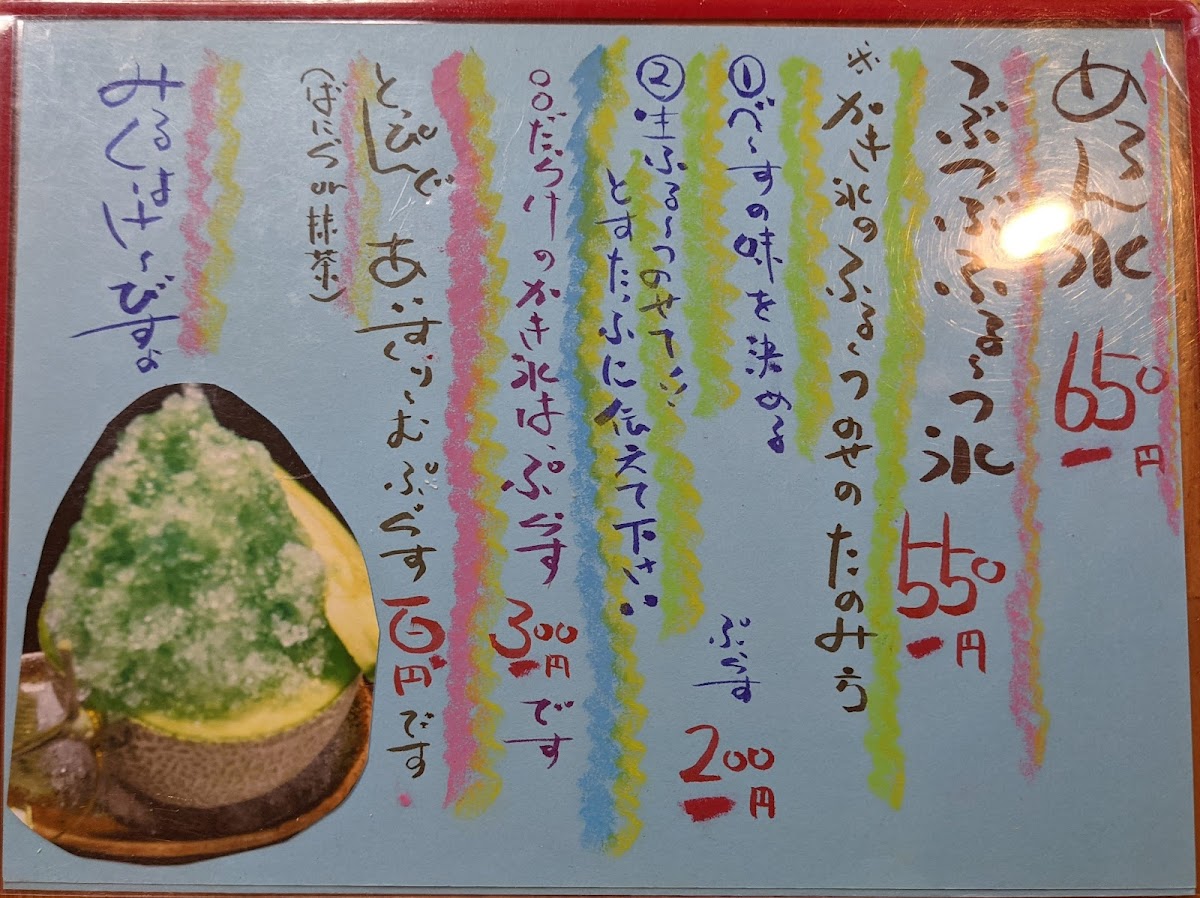 めろん氷 650円
つぶつぶふるーつ氷 550円
※かき氷のふるーつのせのたのみ方
①べーすの味を決める
②生ふるーつのせて!!
とすたっふに伝えて下さい!!
ぷらす 200円
○○だらけのかき氷は、ぷらす 300円です
とっぴんぐ あいすくりーむぷらす 百円です
(ばにら or 抹茶)
みるくはさーびす。